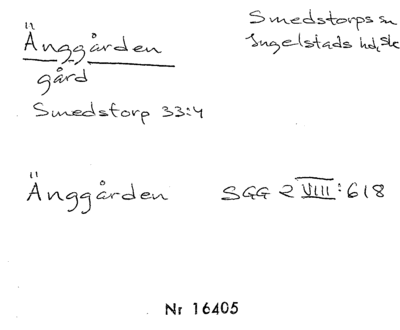 Änggården
gård
Smedstorp 33:4
Smedstorps sn
Ingelstads hd, Sk
Änggården SGG 2 VIII:618
Nr 16405